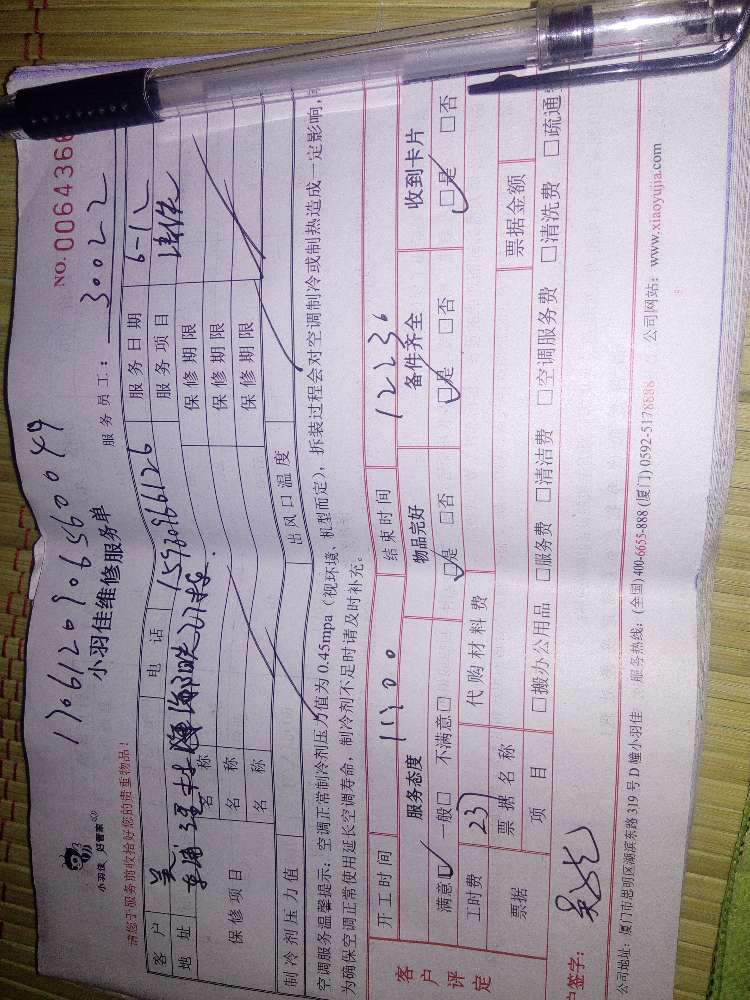 17061209065560049
NO. 0064366
小羽佳 好管家
小羽佳维修服务单
服务员工： 30022
请您于服务前收拾好您的贵重物品！
客户 吴 电话 15980966126 服务日期 6-12
地址 服务项目 清洗
保修项目 名称 保修期限
名称 保修期限
名称 保修期限
制冷剂压力值 出风口温度
空调服务温馨提示：空调正常制冷剂压力值为0.45mpa（视环境、机型而定），拆装过程会对空调制冷或制热造成一定影响，
为确保空调正常使用延长空调寿命，制冷剂不足时请及时补充。
开工时间 1100 结束时间 12236
客户评定 服务态度 物品完好 备件齐全 收到卡片
满意☑ 一般□ 不满意□ ☑是 □否 ☑是 □否 ☑是 □否
工时费 237 代购材料费
票据 票据名称 票据金额
项目 □搬办公用品 □服务费 □清洁费 □空调服务费 □清洗费 □疏通
户签字：
公司地址：厦门市思明区湖滨东路319号D幢小羽佳 服务热线：(全国) 400-6655-888 (厦门) 0592-5178888 公司网站：www.xiaoyujia.com